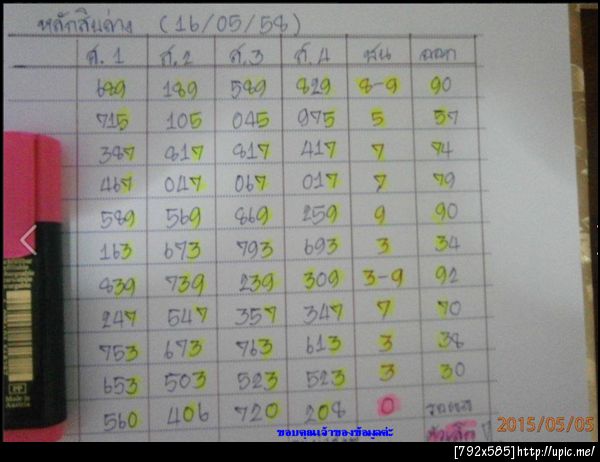 หลักสิบล่าง (16/05/58)
ส.1 ส.2 ส.3 ส.4 ชน ออก
689 189 589 829 8-9 90
715 105 045 975 5 57
387 817 817 417 7 74
467 047 067 017 7 79
589 569 869 259 9 90
163 673 793 693 3 34
839 739 239 309 3-9 92
247 547 357 347 7 70
753 673 763 613 3 38
653 503 523 523 3 30
560 406 720 208 0
Made in
Austria
ขอบคุณเจ้าของข้อมูลค่ะ
2015/05/05
[792x585]http://upic.me/